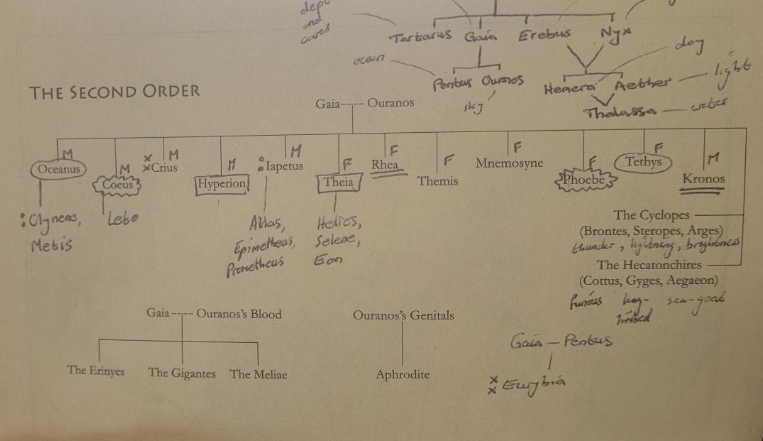 and
caves
Tartarus Gaia Erebus Nyx
day
ocean
Pontus Ouranos
Hemera Aether
light
sky
Thalassa
water
THE SECOND ORDER
Gaia Ouranos
M M M M M F F F F F F M
Oceanus Coeus Crius Hyperion Iapetus Theia Rhea Themis Mnemosyne Phoebe Tethys Kronos
Clymene,
Metis
Leto
Atlas,
Epimetheus,
Prometheus
Helios,
Selene,
Eon
The Cyclopes
(Brontes, Steropes, Arges)
thunder, lightning, brightness
The Hecatonchires
(Cottus, Gyges, Aegaeon)
furious long-limbed sea-goat
Gaia Ouranos's Blood
The Erinyes The Gigantes The Meliae
Ouranos's Genitals
Aphrodite
Gaia - Pontus
Eurybia